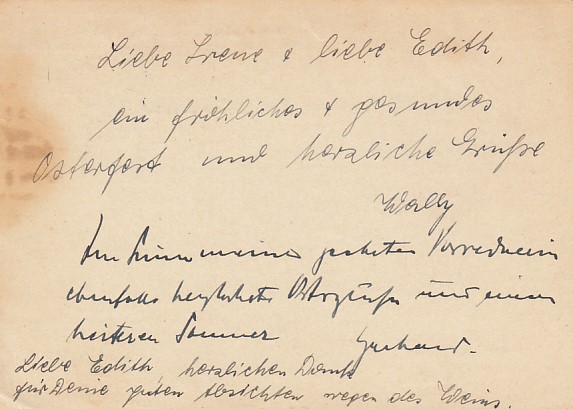 Liebe Irene & liebe Edith,
ein fröhliches & gesundes
Osterfest und herzliche Grüße
Wally
Im Sinne meiner geehrten Vorrednerin
ebenfalls herzlichste Ostergrüße und einen
heiteren Sommer Gerhard.
Liebe Edith, herzlichen Dank
für Deine guten Absichten wegen des Weins.